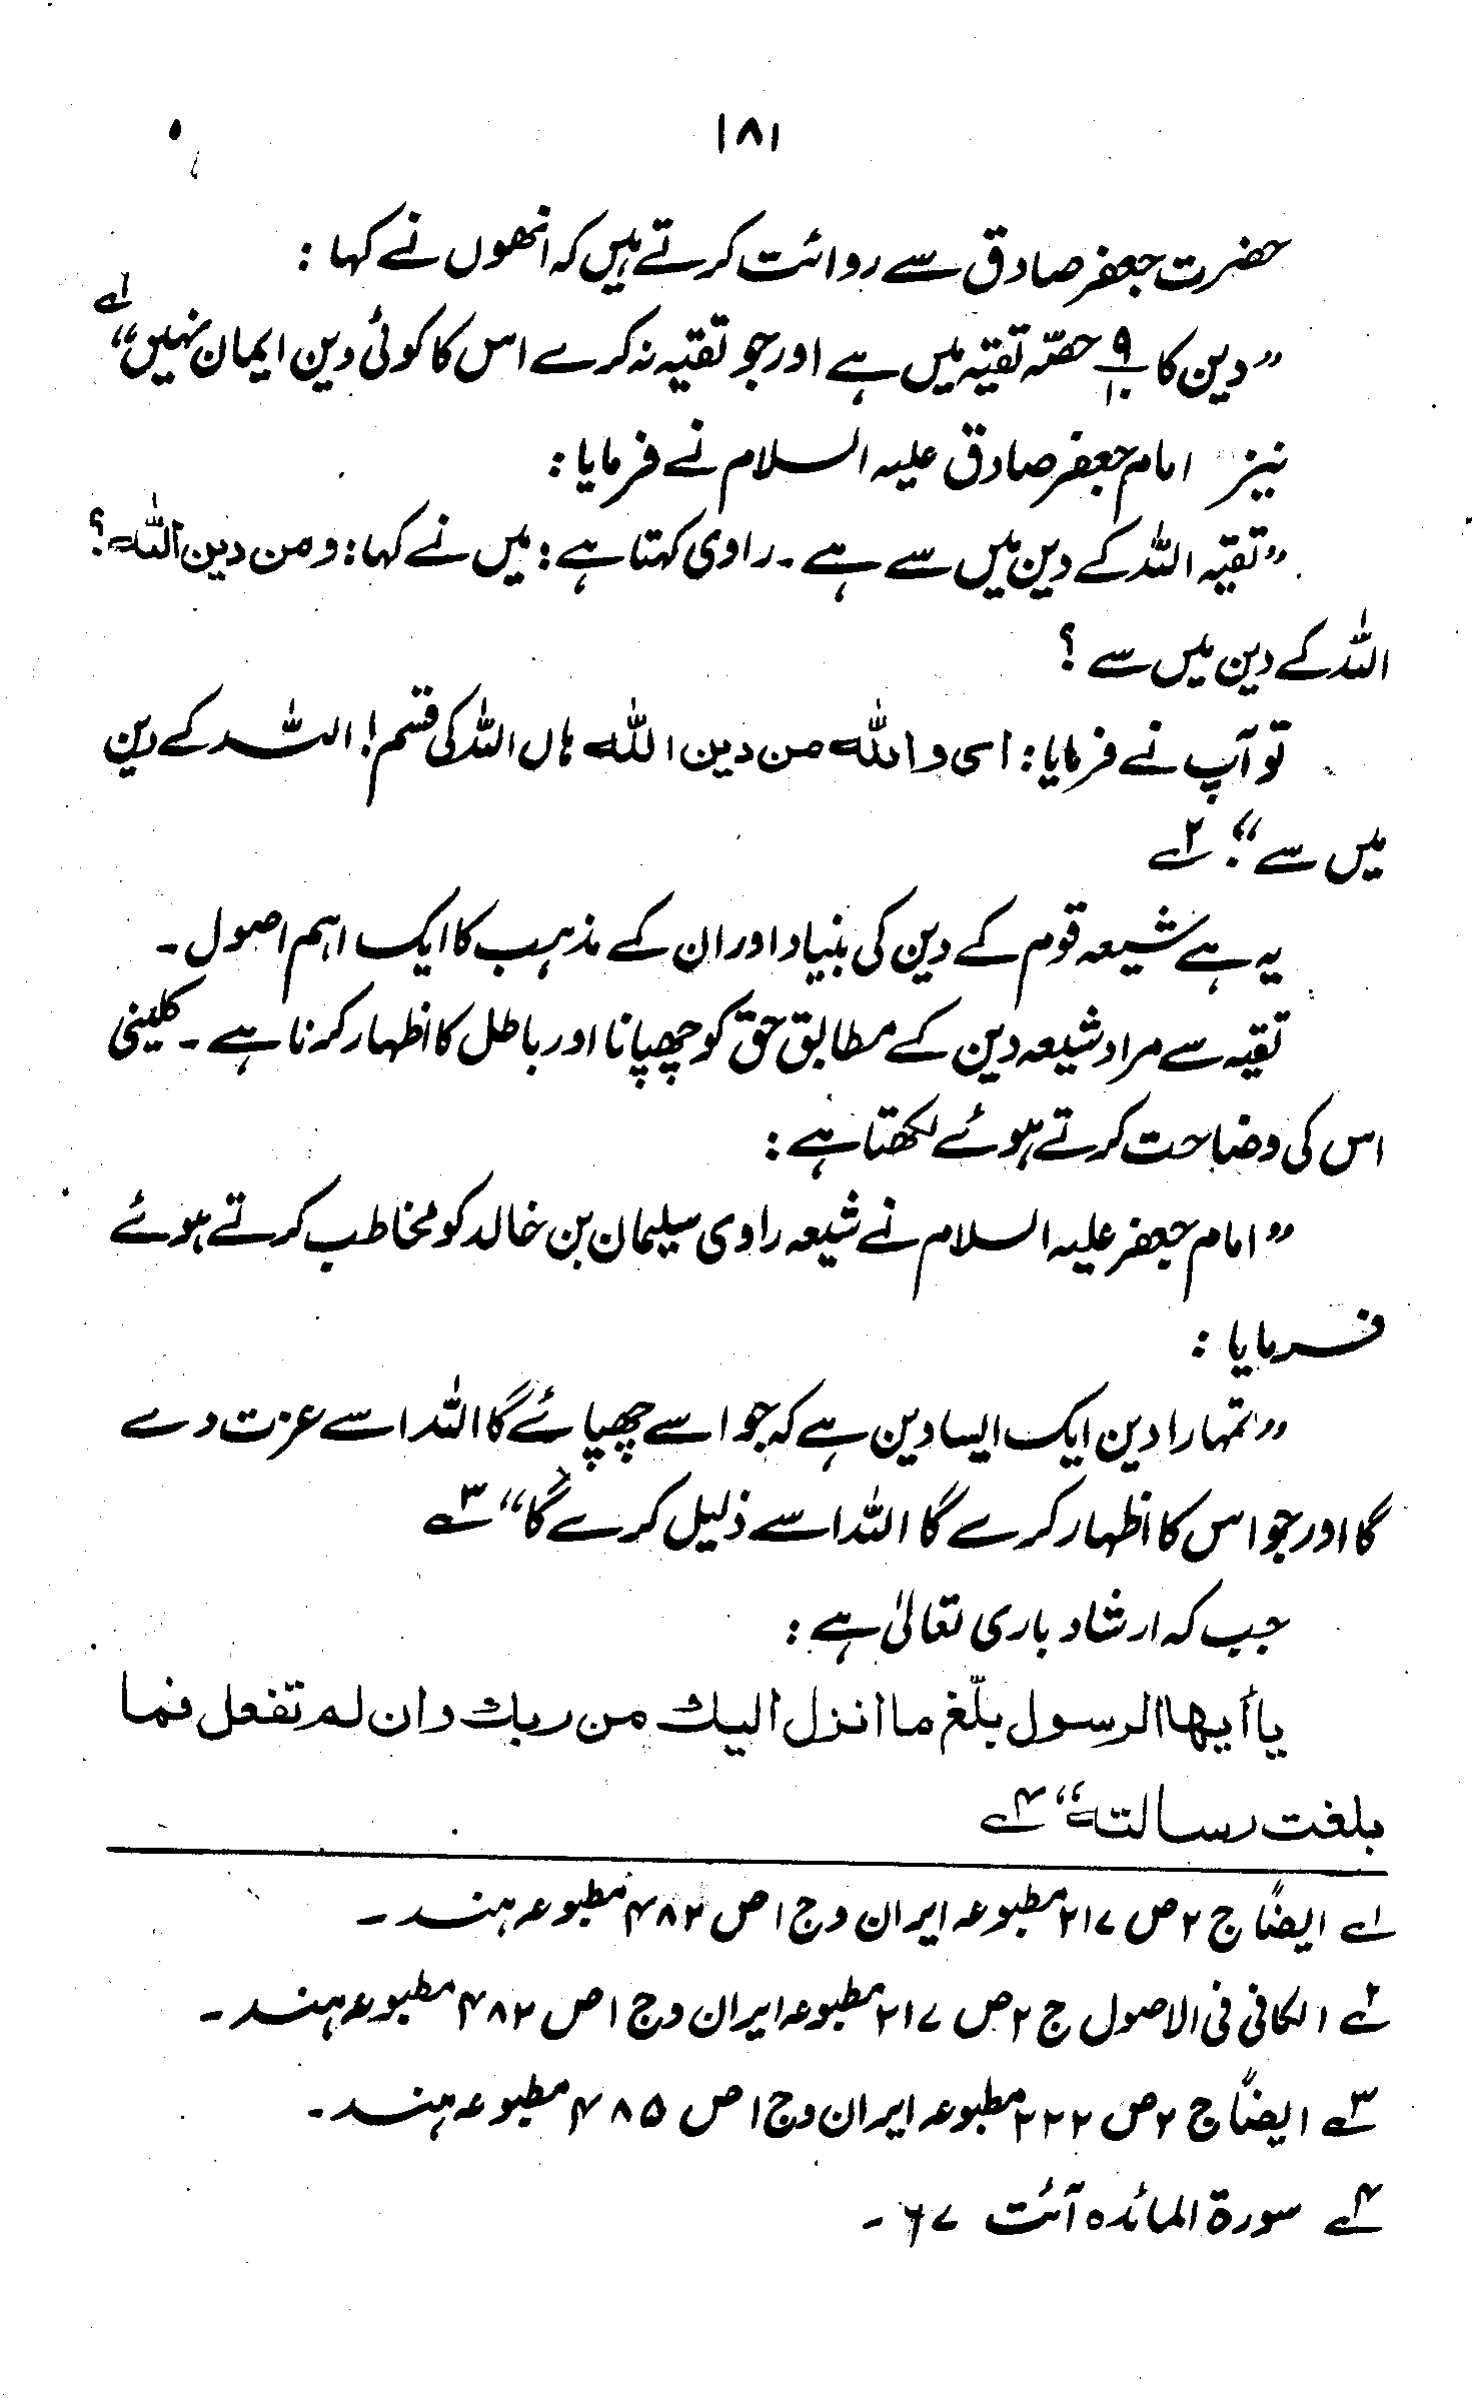 ۱۸۱
حضرت جعفر صادق سے روائت کرتے ہیں کہ انھوں نے کہا :
”دین کا ۹/۱۰ حصّہ تقیّہ میں ہے اور جو تقیّہ نہ کرے اس کا کوئی دین ایمان نہیں“ ۱ے
نیز امام جعفر صادق علیہ السلام نے فرمایا :
”تقیّہ اللہ کے دین میں سے ہے۔ راوی کہتا ہے : میں نے کہا : ومن دین اللہ؟
اللہ کے دین میں سے ؟
تو آپ نے فرمایا : ای واللہ من دین اللہ ہاں اللہ کی قسم! اللہ کے دین
میں سے“۔ ۲ے
یہ ہے شیعہ قوم کے دین کی بنیاد اور ان کے مذہب کا ایک اہم اصول۔
تقیہ سے مراد شیعہ دین کے مطابق حق کو چھپانا اور باطل کا اظہار کرنا ہے۔ کلینی
اس کی وضاحت کرتے ہوئے لکھتا ہے :
”امام جعفر علیہ السلام نے شیعہ راوی سیلمان بن خالد کو مخاطب کرتے ہوئے
فرمایا :
”تمہارا دین ایک ایسا دین ہے کہ جو اسے چھپائے گا اللہ اسے عزت دے
گا اور جو اس کا اظہار کرے گا اللہ اسے ذلیل کرے گا“ ۳ے
جب کہ ارشاد باری تعالیٰ ہے :
یا أیھا الرسول بلّغ ما انزل الیك من ربك وان لم تفعل فما
بلغت رسالتہ“ ۴ے
۱ے ایضاً ج ۲ ص ۲۱۷ مطبوعہ ایران و ج ۱ ص ۴۸۲ مطبوعہ ہند۔
۲ے الکافی فی الاصول ج ۲ ص ۲۱۷ مطبوعہ ایران و ج ۱ ص ۴۸۲ مطبوعہ ہند۔
۳ے ایضاً ج ۲ ص ۲۲۲ مطبوعہ ایران و ج ۱ ص ۴۸۵ مطبوعہ ہند۔
۴ے سورة المائدہ آئت ۶۷۔